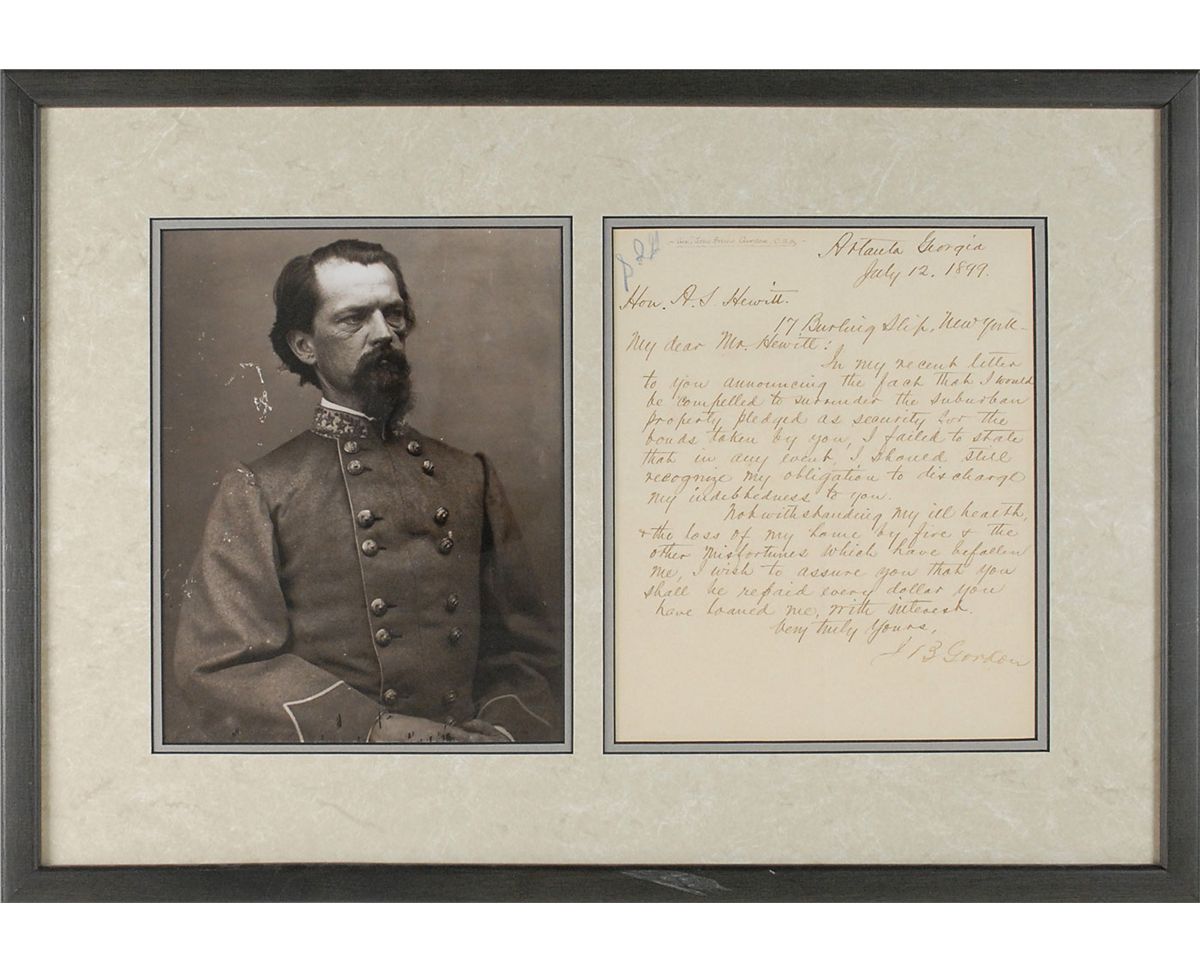 Gen. John Brown Gordon, C.S.A.
Atlanta Georgia
July 12. 1899.
Hon. A. S. Hewitt.
17 Burling Slip, New York-
My dear Mr. Hewitt:
In my recent letter
to you announcing the fact that I would
be compelled to surrender the suburban
property pledged as security for the
bonds taken by you, I failed to state
that in any event I should still
recognize my obligation to discharge
my indebtedness to you.
Notwithstanding my ill health,
& the loss of my home by fire & the
other misfortunes which have befallen
me, I wish to assure you that you
shall be repaid every dollar you
have loaned me, with interest.
Very truly Yours,
J B Gordon